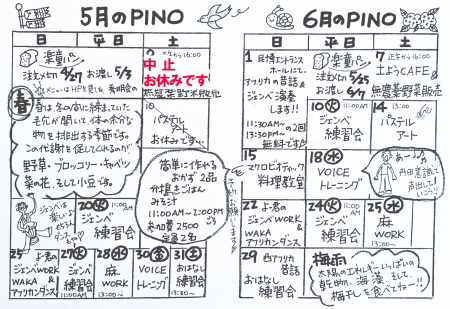 5月のPINO
日 平日 土
楽童パン
注文〆切 4/27 お渡し 5/3
中止
お休みです
春
春は、冬の間に縮まっていた
毛穴が開いて体の余分な
物を排出する季節です。
この代謝を促してくれるのが
野草・ブロッコリー・キャベツ
菜の花、そして小豆です。
10
パステル
アート
お休みです
簡単に作れる
おかず 2品
分搗きごはん
みそ汁
11:00AM〜2:00PM
参加費 2500
定員 2名
20 火 11:00AM
ジェンベ
練習会
25 よう君の
ジェンベWORK
WAKA &
アフリカンダンス
27 火
ジェンベ
練習会
11:00AM
28 水
麻
WORK
13:00〜
30 金
VOICE
トレーニング
31 土
おはなし
練習会
13:30〜
6月のPINO
日 平日 土
1 民博エントランス
ホールにて、
アフリカの昔話&
ジェンベ演奏
します!!
11:30AM〜
13:30PM〜 の2回
無料です
楽童パン
注文〆切 6/25
お渡し 6/7
7 正午から16:00
土ようCAFE
無農薬野菜販売
10 火 11:00AM
ジェンベ
練習会
14 13:00
パステル
アート
15
マクロビオティック
料理教室
18 水
VOICE
トレーニング
あ〜
丹田意識して
声出して
22 よう君の
ジェンベWORK
WAKA &
アフリカンダンス
24 火 11:00AM
ジェンベ
練習会
25 水
麻
WORK
13:00〜
29 西アフリカ
昔話
おはなし
練習会
梅雨
太陽のエネルギーいっぱいの
乾物、海藻、そして、
梅干しを食べてね〜!!